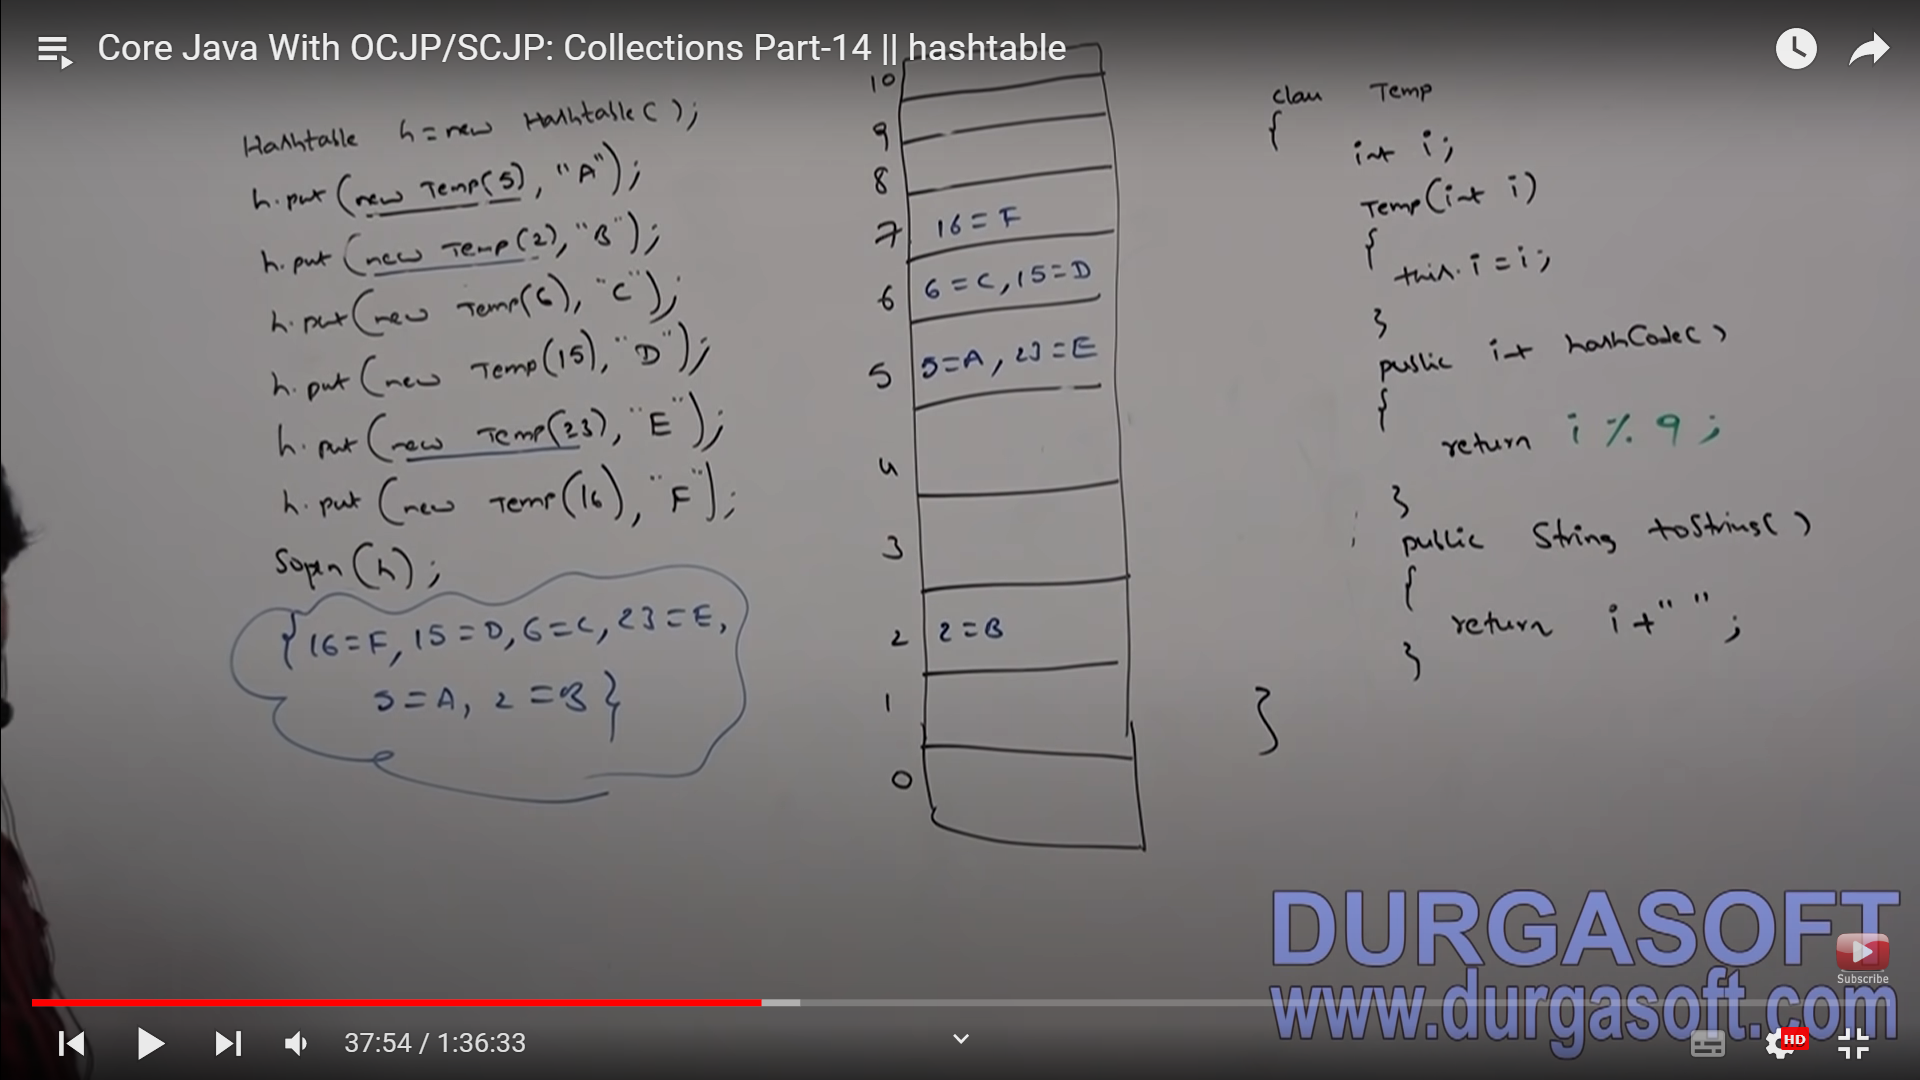 Core Java With OCJP/SCJP: Collections Part-14 || hashtable
Hashtable h = new Hashtable();
h.put(new Temp(5), "A");
h.put(new Temp(2), "B");
h.put(new Temp(6), "C");
h.put(new Temp(15), "D");
h.put(new Temp(23), "E");
h.put(new Temp(16), "F");
Sopln(h);
{16=F, 15=D, 6=C, 23=E,
5=A, 2=B}
10
9
8
7 16=F
6 6=C, 15=D
5 5=A, 23=E
4
3
2 2=B
1
0
class Temp
{
int i;
Temp(int i)
{
this.i=i;
}
public int hashCode()
{
return i % 9;
}
public String toString()
{
return i+"";
}
}
DURGASOFT
www.durgasoft.com
Subscribe
37:54 / 1:36:33
HD